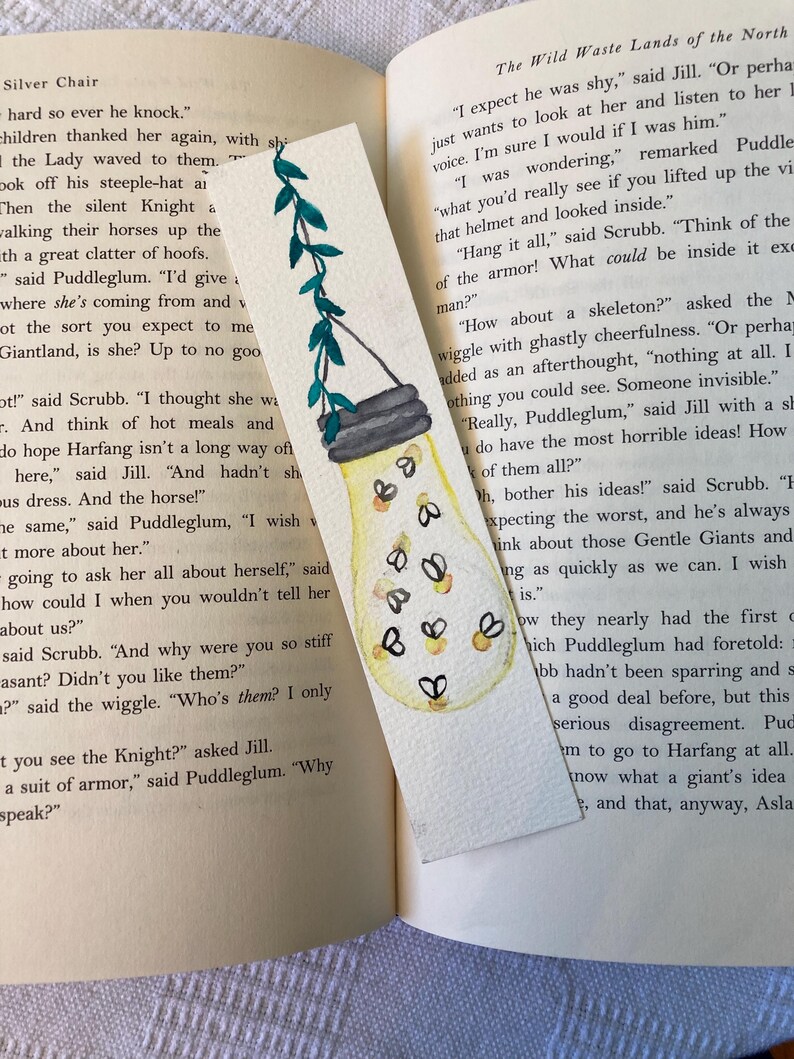 Silver Chair
hard so ever he knock.”
children thanked her again, with
the Lady waved to them.
took off his steeple-hat
Then the silent Knight
walking their horses up the
with a great clatter of hoofs.
” said Puddleglum. “I’d give
where she’s coming from and
not the sort you expect to
Giantland, is she? Up to no
said Scrubb. “I thought she
And think of hot meals and
do hope Harfang isn’t a long way
here,” said Jill. “And hadn’t
dress. And the horse!”
the same,” said Puddleglum, “I wish
more about her.”
going to ask her all about herself,” said
how could I when you wouldn’t tell her
about us?”
said Scrubb. “And why were you so stiff
Didn’t you like them?”
said the wiggle. “Who’s them? I only
you see the Knight?” asked Jill.
a suit of armor,” said Puddleglum. “Why
speak?”
The Wild Waste Lands of the North
“I expect he was shy,” said Jill. “Or
just wants to look at her and listen to her
voice. I’m sure I would if I was him.”
“I was wondering,” remarked
“what you’d really see if you lifted up the
that helmet and looked inside.”
“Hang it all,” said Scrubb. “Think of the
of the armor! What could be inside it
man?”
“How about a skeleton?” asked the
wiggle with ghastly cheerfulness. “Or
added as an afterthought, “nothing at all. I
nothing you could see. Someone invisible.”
“Really, Puddleglum,” said Jill with a
do have the most horrible ideas! How
of them all?”
bother his ideas!” said Scrubb.
expecting the worst, and he’s always
think about those Gentle Giants and
as quickly as we can. I wish
is.”
they nearly had the first
which Puddleglum had foretold:
hadn’t been sparring and
a good deal before, but this
serious disagreement.
to go to Harfang at all.
know what a giant’s idea
and that, anyway,